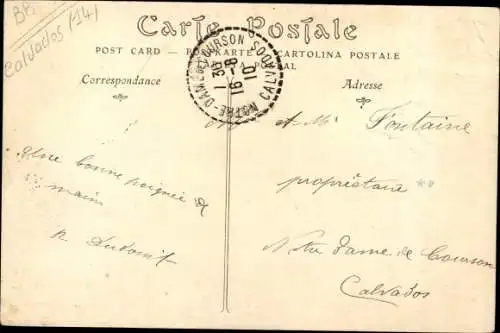 BR
Calvados (14)
Carte Postale
POST CARD — POSTKARTE — CARTOLINA POSTALE
POSTAL
NOTRE-DAME-DE-COURSON CALVADOS
16 - 8
10
Correspondance
Adresse
A Mr Fontaine
propriétaire
Notre Dame de Courson
Calvados
Une bonne poignée de
main